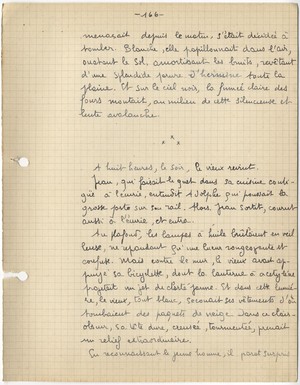 -166-
menaçait depuis le matin, s'était décidée à
tomber. Blanche, elle papillonnait dans l'air,
ouatant le sol, amortissant les bruits, revêtant
d'une splendide parure d'hermine toute la
plaine. Et sur le ciel noir, la fumée claire des
fours montait, au milieu de cette silencieuse et
lente avalanche.
* * *
A huit heures, le soir, le vieux revint.
Jean, qui faisait le guet dans sa cuisine conti-
guë à l'écurie, entendit Adolphe qui poussait la
grosse porte sur son rail. Alors, Jean sortit, courut
aussi à l'écurie, et entra.
Au plafond, les lampes à huile brûlaient en veil
leuse, ne répandant qu'une lueur rougeoyante et
confuse. Mais contre le mur, le vieux avait ap-
puyé sa bicyclette, dont la lanterne à acétylène
projetait un jet de clarté jaune. Et dans cette lumiè-
re, le vieux, tout blanc, secouait ses vêtements d'où
tombaient des paquets de neige. Dans ce clair-
obscur, sa tête dure, creusée, tourmentée, prenait
un relief extraordinaire.
En reconnaissant le jeune homme, il parut surpris